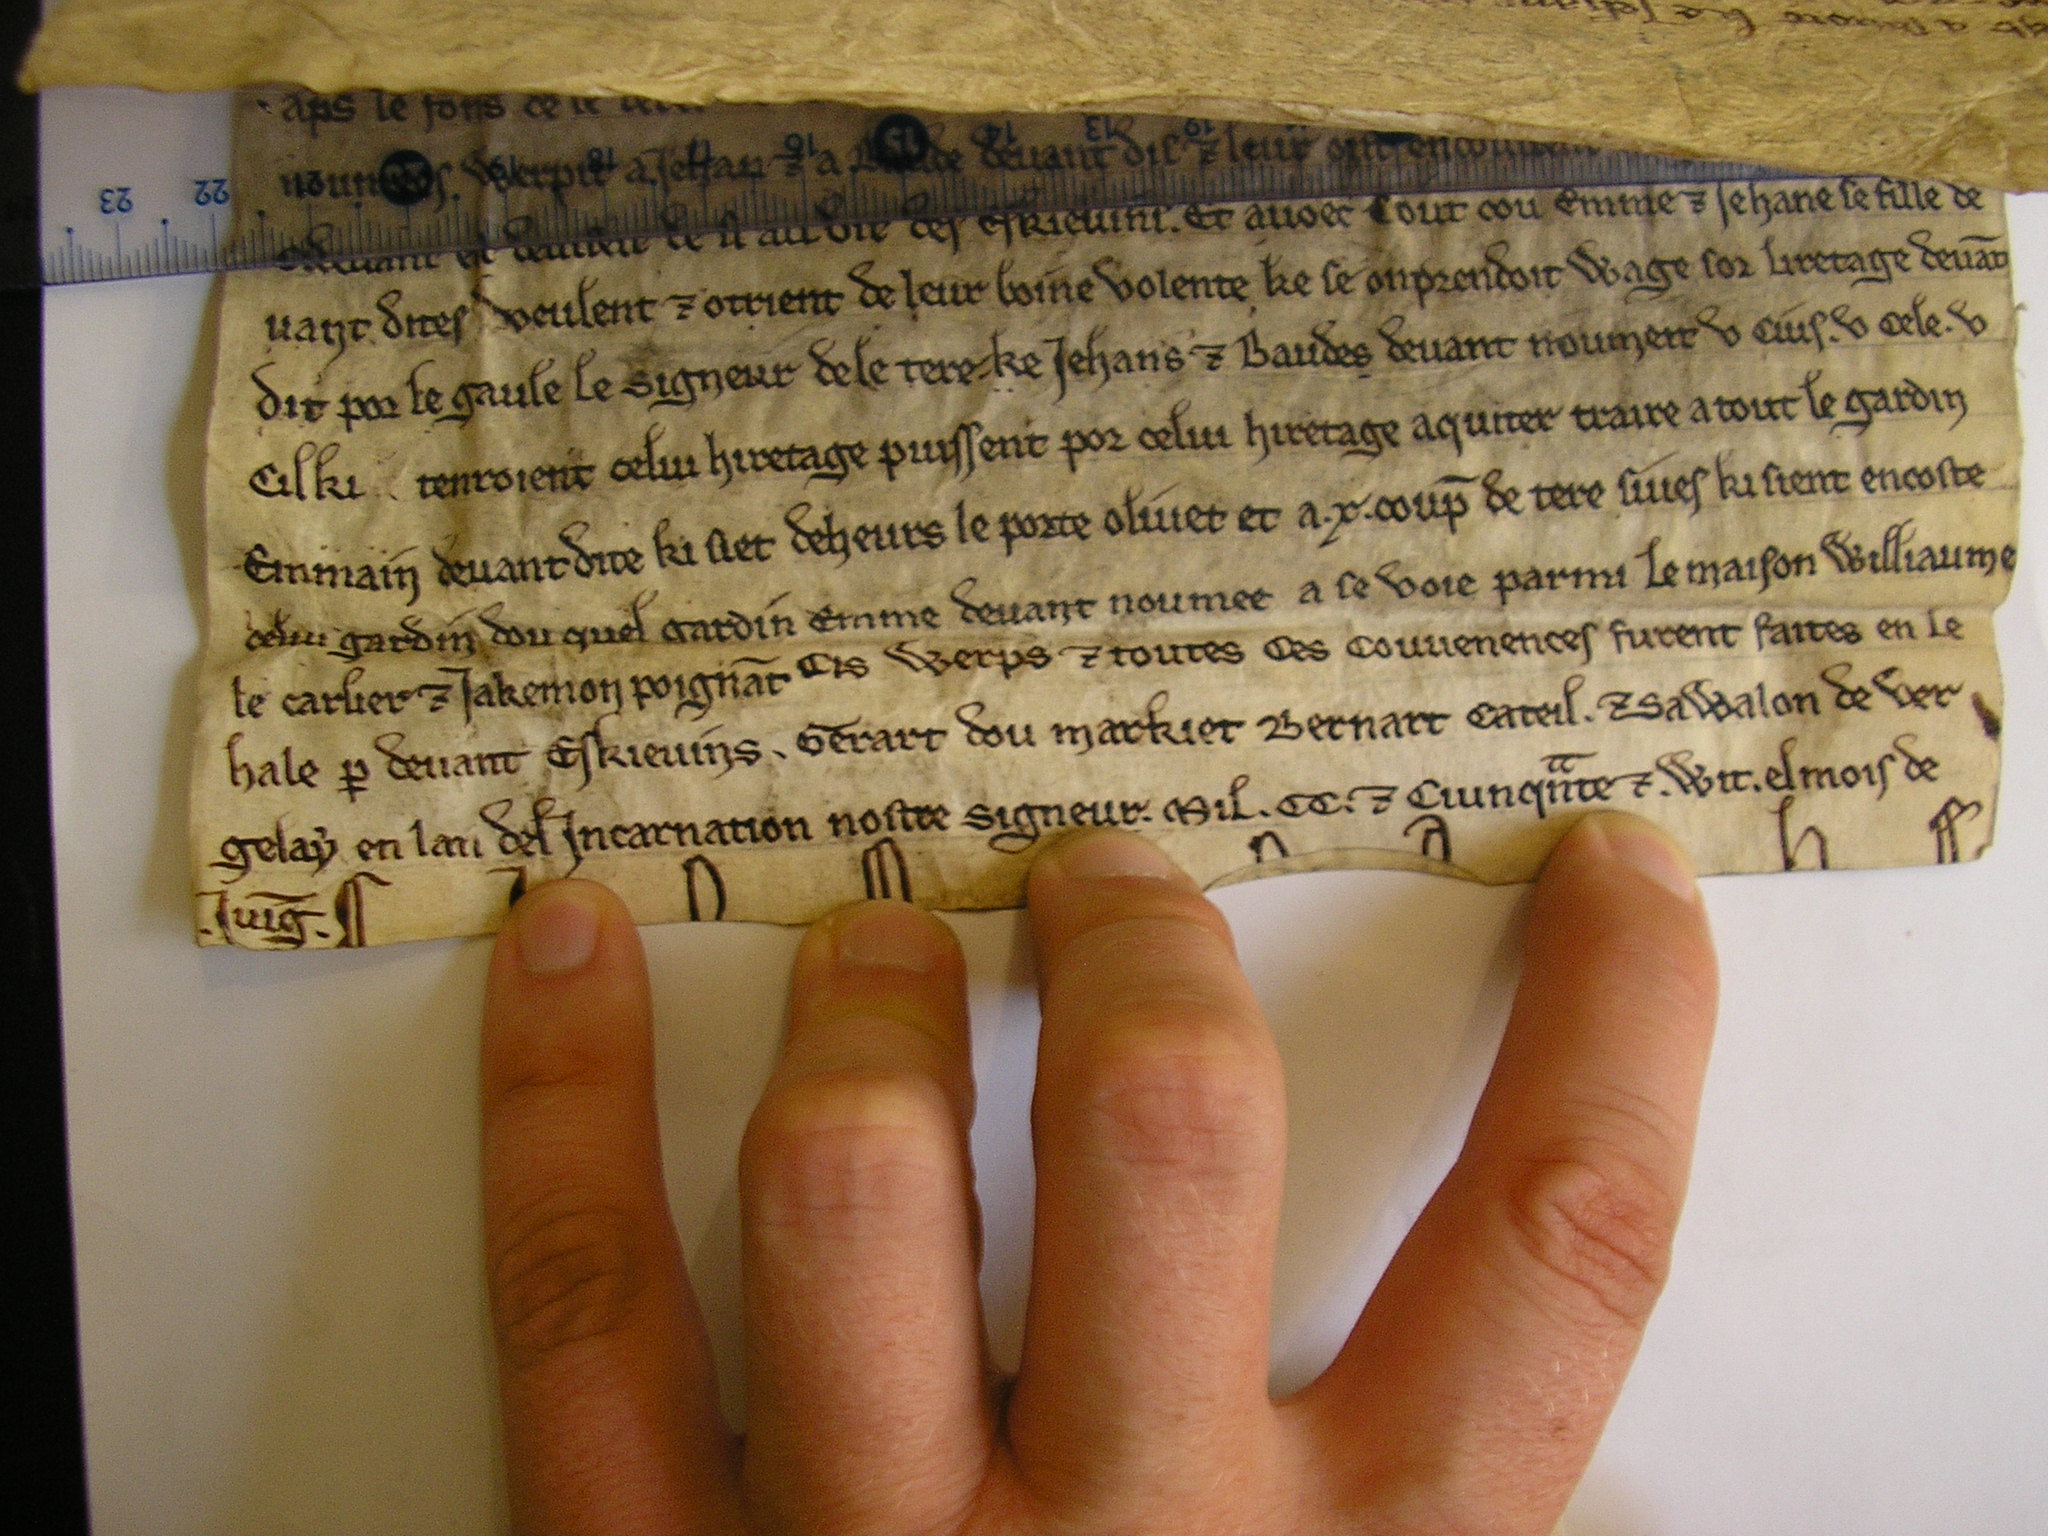 aps le fons de le
Werpit a Jehan ⁊ a devant dis ⁊ leur ont
devant et de si au dit des Eskievins. Et avoec tout cou Emme ⁊ Jehane se fille de
vant dites veulent ⁊ otrient de leur boine volente ke se on prendoit Wage sor liretage devāt
dit por le gaule le signeur de le tere ke Jehans ⁊ Baudes devant noumeit v cius. v cele. v
Cil ki tenroient celui hiretage puissent por celui hiretage aquiter traire a tout le gardin
Emmain devant dite ki siet deheurs le porte olivet et a .x. coup̄ de tere sives ki sient encoste
celui gardin dou quel gardin Emme devant noumee a se voie parmi le maison Williaume
le carlier ⁊ Jakemon poignāt Cis Werps ⁊ toutes ces couvenences furent faites en le
hale ꝑ devant Eskievins. Gērart dou markiet Bernart Catel. ⁊ SaWalon de Ver
gelay en lan del Incarnation nostre signeur. Mil. CC. ⁊ Ciunqnte ⁊. Wit. el mois de
.Juig̅.
23 22 19 18 17 16 15 14 13 12